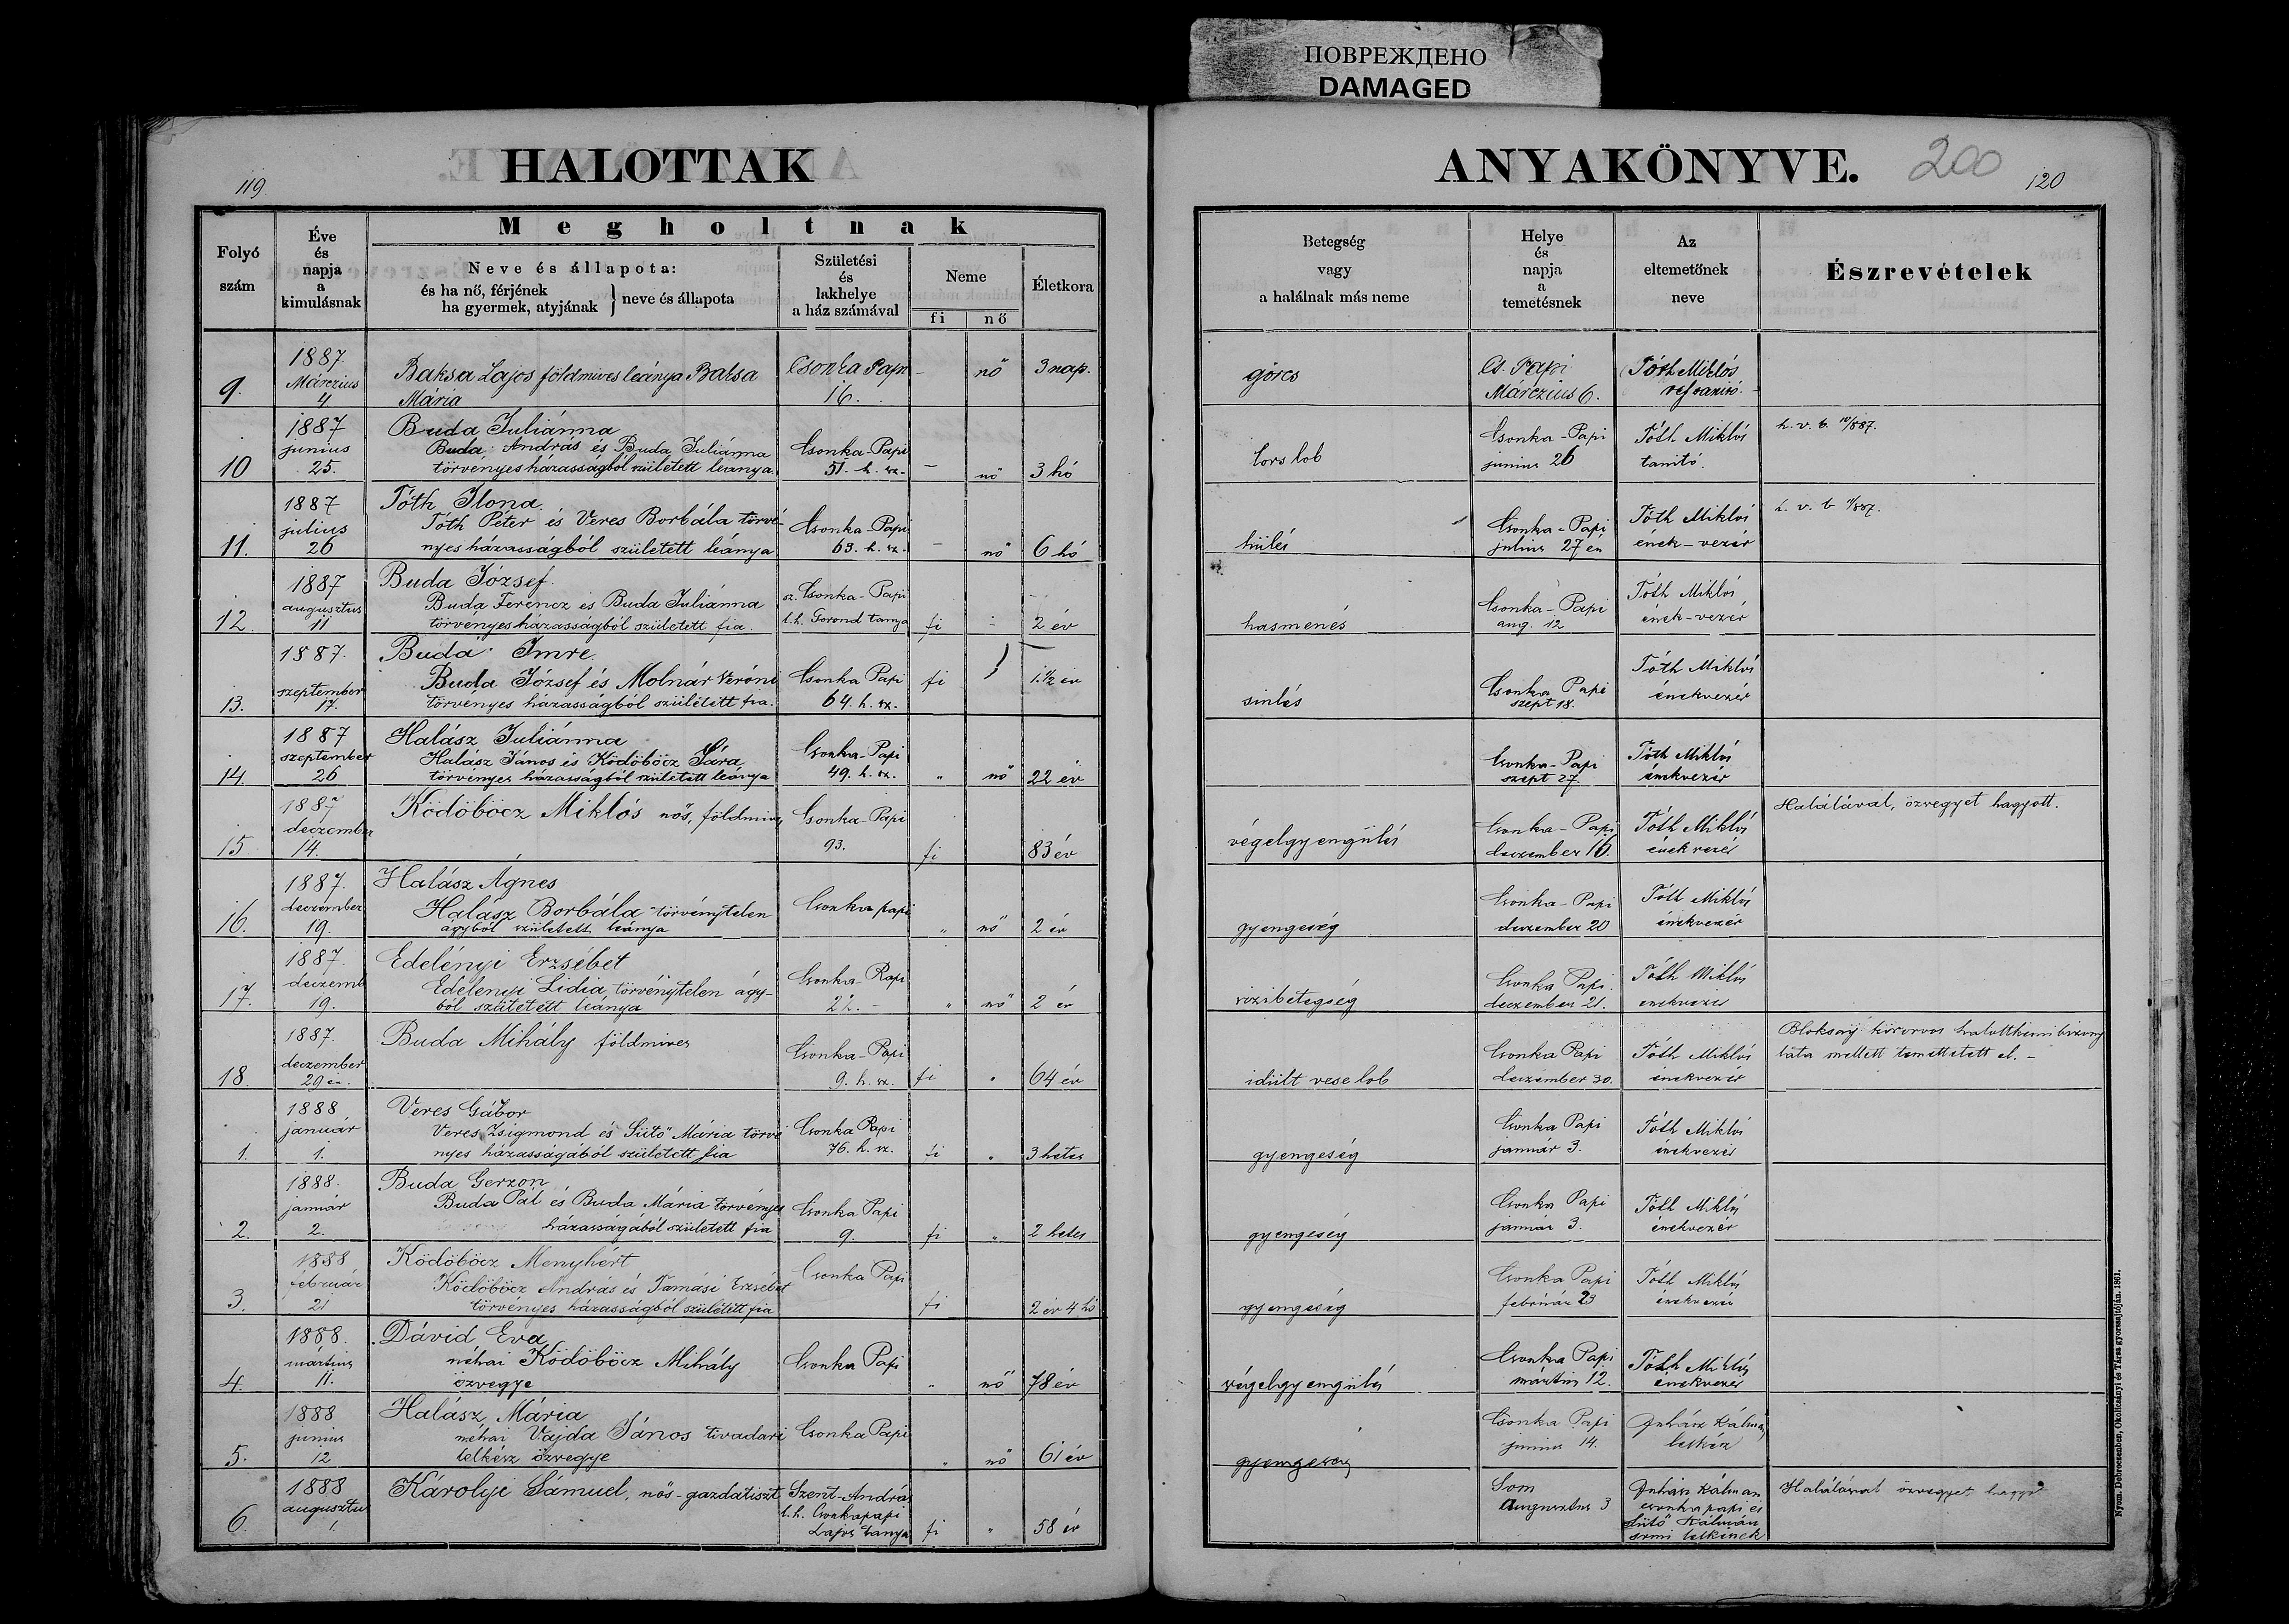 ПОВРЕЖДЕНО
DAMAGED
119.
HALOTTAK
Folyó szám
Éve és napja a kimulásnak
Megholtnak
Neve és állapota:
és ha nő, férjének
ha gyermek, atyjának
neve és állapota
Születési és lakhelye a ház számával
Neme
fi
nő
Életkora
ANYAKÖNYVE.
200
120
Betegség vagy a halálnak más neme
Helye és napja a temetésnek
Az eltemetőnek neve
Észrevételek
9.
1887.
Márczius
4
Baksa Lajos földmives leánya Baksa
Mária
Csonka Papi
16.
–
nő
3 nap.
görcs
Cs. Papi
Márczius 6.
Tóth Miklós
10
1887
junius
25.
Buda Juliánna
Buda András és Buda Juliánna
törvényes házasságból született leánya
Csonka-Papi
51. h. sz.
–
nő
3 hó
Csonka-Papi
junius 26
Tóth Miklós
tanító.
h. v. b. 10/887.
11.
1887
julius
26
Tóth Ilona.
Tóth Péter és Veres Borbála törvé-
nyes házasságból született leánya
Csonka-Papi
63. h. sz.
–
nő
6 hó
hülés
Csonka-Papi
julius 27 én
Tóth Miklós
ének-vezér
h. v. b. 11/887.
12.
1887
augusztus
11
Buda József.
Buda Ferencz és Buda Juliánna
törvényes házasságból született fia.
sz. Csonka-Papi
l. h. Gorond tanya
fi
2 év
hasmenés
Csonka-Papi
aug. 12
Tóth Miklós
ének-vezér
13.
1887.
szeptember
17.
Buda Imre.
Buda József és Molnár Veróni
törvényes házasságból született fia.
Csonka Papi
64. h. sz.
fi
1 1/2 év
sinlés
Csonka Papi
szept 18.
Tóth Miklós
énekvezér
14.
1887
szeptember
26
Halász Juliánna
Halász János és Ködöböcz Sára
törvényes házasságból született leánya
Csonka-Papi
49. h. sz.
"
nő
22 év
Csonka-Papi
szept 27.
Tóth Miklós
énekvezér
15
1887
deczember
14.
Ködöböcz Miklós nős, földmives
Csonka-Papi
93.
fi
83 év
végelgyengülés
Csonka-Papi
deczember 16.
Tóth Miklós
énekvezér
Halálával, özvegyet hagyott.
16.
1887.
deczember
19.
Halász Ágnes
Halász Borbála törvénytelen
ágyból született leánya
Csonka papi
"
nő
2 év
gyengeség
Csonka-Papi
deczember 20
Tóth Miklós
énekvezér
17.
1887.
deczemb
19.
Edelényi Erzsébet
Edelényi Lidia törvénytelen ágy-
ból született leánya
Csonka-Papi
22.
"
nő
2 év
vizibetegség
Csonka Papi.
deczember 21.
Tóth Miklós
énekvezér
18.
1887.
deczember
29 én.
Buda Mihály földmives
Csonka-Papi
9. h. sz.
fi
"
64 év
idült vese lob
Csonka Papi
deczember 30.
Tóth Miklós
énekvezér
körorvos halottkémi bizony
lata mellett temettetett el. –
1.
1888
január
1.
Veres Gábor
Veres Zsigmond és Sütő Mária törvé
nyes házasságából született fia
Csonka Papi
76. h. sz.
fi
"
3 hetes
gyengeség
Csonka Papi
január 3.
Tóth Miklós
énekvezér
2.
1888.
január
2.
Buda Gerzon
Buda Pál és Buda Mária törvényes
házasságából született fia
Csonka Papi
9.
fi
"
2 hetes
gyengeség
Csonka Papi
január 3.
Tóth Miklós
énekvezér
3.
1888
február
21
Ködöböcz Menyhért
Ködöböcz András és Tamási Erzsébet
törvényes házasságból született fia
Csonka Papi
fi
2 év 4 hó
gyengeség
Csonka Papi
február 23
Tóth Miklós
énekvezér
4.
1888.
mártius
11.
Dávid Eva
néhai Ködöböcz Mihály
özvegye
Csonka Papi
"
nő
78 év
végelgyengülés
Csonka Papi
mártius 12.
Tóth Miklós
énekvezér
5.
1888
junius
12
Halász Mária
néhai Vajda János tivadari
lelkész özvegye
Csonka Papi
"
nő
61 év
gyengeség
Csonka Papi
junius 14.
Juhász Kálmán
lelkész
6.
1888
augusztus
1.
Károlyi Samuel, nős-gazdatiszt
Szent-András
l. h. Csonkapapi
Lajos tanya
fi
"
58 év
Som
Augusztus 3
Juhász Kálmán
csonka papi és
Sütő Kálmán
somi lelkészek
Halálával özvegyet hagyott
Nyom. Debreczenben, Okolicsányi és Társa gyorssajtóján. 1861.